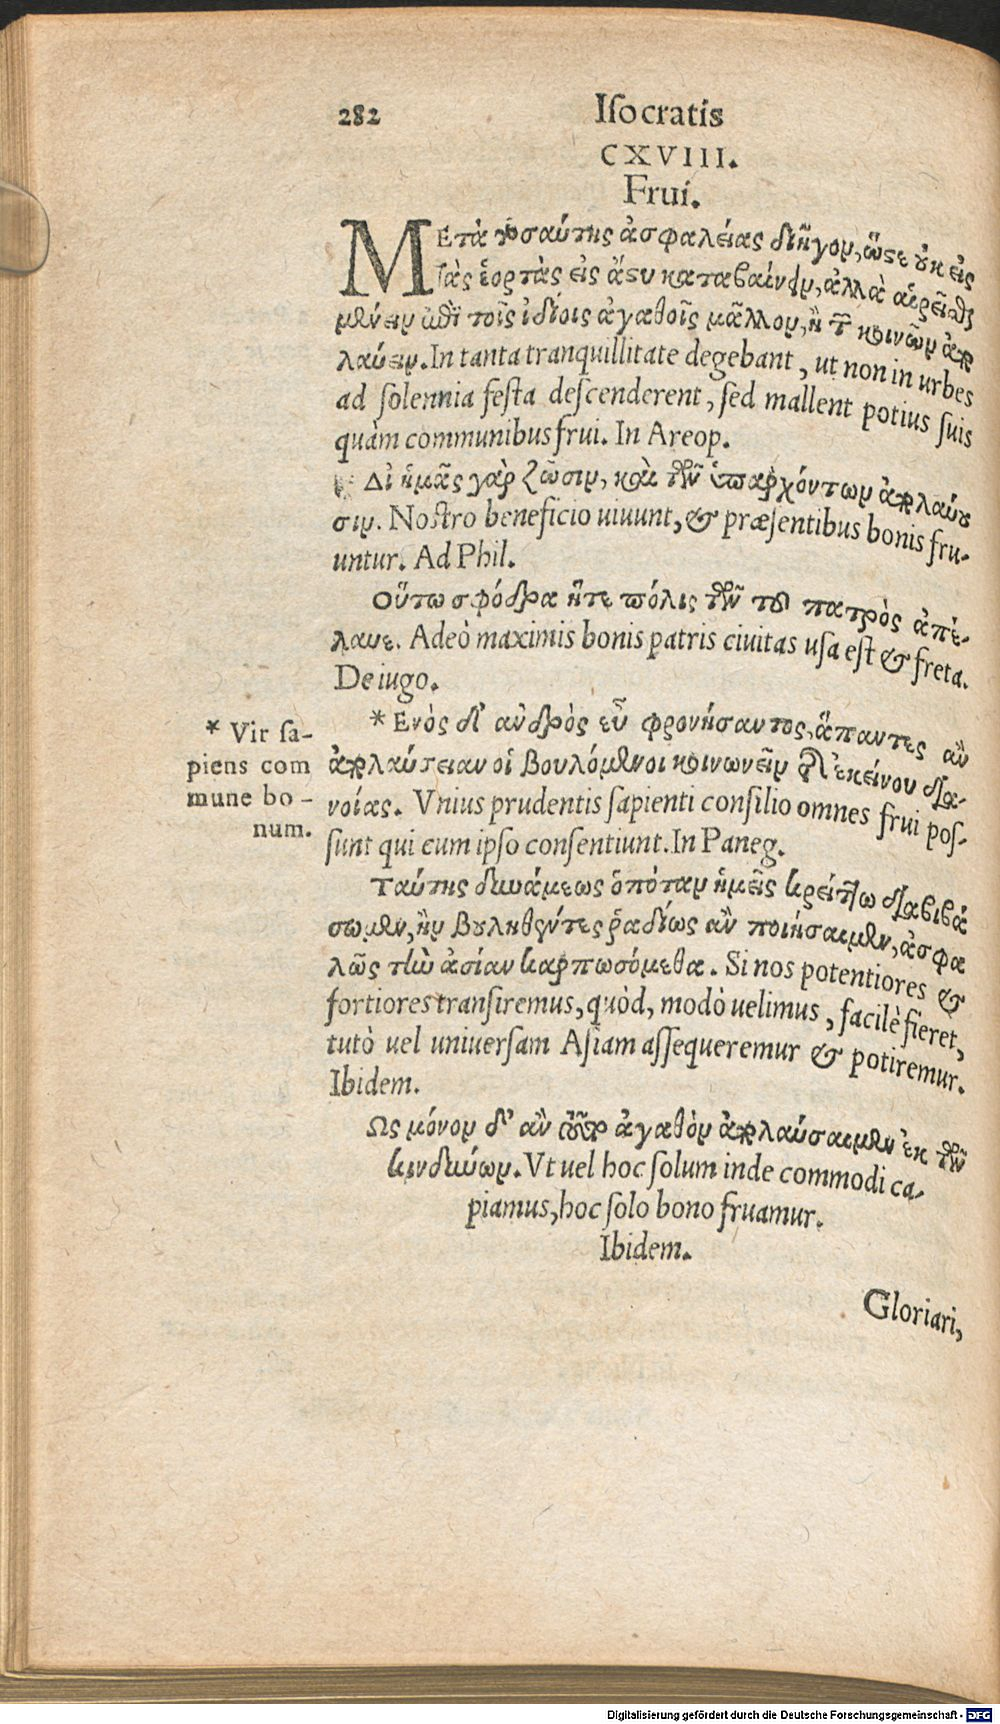 282 Iſocratis
CXVIII.
Frui.
ΜΕτὰ τοσαύτης ἀσφαλείας διῆγον, ὥστε οὐκ εἰς
τὰς ἑορτὰς εἰς ἄστυ καταβαίνειν, ἀλλὰ αἱρεῖσθαι
μένειν ἐπὶ τοῖς ἰδίοις ἀγαθοῖς μᾶλλον, ἢ τῶν κοινῶν ἀπο
λαύειν. In tanta tranquillitate degebant, ut non in urbes
ad ſolennia feſta deſcenderent, ſed mallent potius ſuis
quàm communibus frui. In Areop.
Δι ἡμᾶς γὰρ ζῶσιν, καὶ τῶν ὑπαρχόντων ἀπολαύου
σιν. Noſtro beneficio uiuunt, & præſentibus bonis fru-
untur. Ad Phil.
Οὕτω σφόδρα ἥτε πόλις τῶν τοῦ πατρὸς ἀπέ-
λαυε. Adeò maximis bonis patris ciuitas uſa eſt & freta.
De iugo.
* Ενὸς δ' ἀνδρὸς εὖ φρονήσαντος, ἅπαντες ἂν
ἀπολαύσειαν οἱ βουλόμενοι κοινωνεῖν τῆς ἐκείνου δια-
νοίας. Vnius prudentis ſapienti conſilio omnes frui poſ-
ſunt qui cum ipſo conſentiunt. In Paneg.
* Vir ſa-
piens com
mune bo-
num.
Ταύτης δυνάμεως ὁπόταν ἡμεῖς κρείττω διαβιβά
σωμεν, ἢν βουληθέντες ῥαδίως ἂν ποιήσαιμεν, ἀσφα
λῶς τὴν ἀσίαν καρπωσόμεθα. Si nos potentiores &
fortiores tranſiremus, quòd, modò uelimus, facilè fieret,
tutò uel uniuerſam Aſiam aſſequeremur & potiremur.
Ibidem.
Ως μόνον δ' ἂν ἀγαθὸν ἀπολαύσαιμεν ἐκ τῶν
κινδύνων. Vt uel hoc ſolum inde commodi ca-
piamus, hoc ſolo bono fruamur.
Ibidem.
Gloriari,
Digitalisierung gefördert durch die Deutsche Forschungsgemeinschaft - DFG